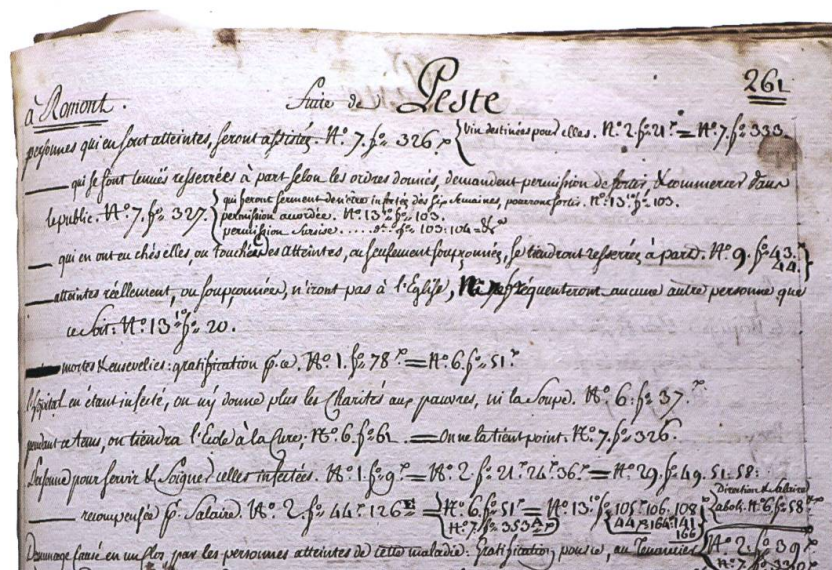 à Romont. Suite de Peste 261
personnes qui en sont atteintes, seront assistés. N.º 7. f.º 326.vº { Vin destinées pour elles. N.º 2. f.º 21.vº = N.º 7. f.º 333.
___ qui se sont tenuës resserrées à part selon les ordres donnés, demandent permission de sortir, & commercer dans
le public. N.º 7. f.º 327. { qui feront serment de n'être infectés dès six semaines, pourront sortir. N.º 13.º f.º 103.
permission accordée. N.º 13.º f.º 103.
permission sursise ..... d.º f.º 103: 104
___ qui en ont eu chés elles, ou touché des atteintes, ou seulement soupçonnées, se tiendront resserrées à part. N.º 9. f.º 43.vº 44. }
___ atteintes réellement, ou soupçonnées, n'iront pas à l'Eglise, fréquenteront aucune autre personne que
ce soit. N.º 13.º f.º 20.
___ mortes & ensevelies: gratification p.r ce. N.º 1. f.º 78.vº = N.º 6. f.º 51.vº
l'hôpital en étant infecté, on n'y donne plus les Charités aux pauvres, ni la Soupe. N.º 6. f.º 37.vº
pendant ce tems, on tiendra l'Ecole à la Cure; N.º 6. f.º 61. = On ne la tient point. N.º 7. f.º 326.
Personne pour servir & Soigner celles infectées. N.º 1. f.º 9.vº = N.º 2. f.º 21.vº 24.vº 36.vº = N.º 29. f.º 49. 51. 58:
Direction & Salaire
___ recompensée p.r Salaire. N.º 2. f.º 44.vº 126.vº = { N.º 6. f.º 51.vº = N.º 13.º f.º 105.vº 106. 108 { aboli. N.º 6. f.º 58.vº
N.º 7. f.º 353 { 144. 164. 141 166
Dommage causé en un par les personnes atteintes de cette maladie: Gratification pour ce, au Tenancier { N.º 2. f.º 39.vº
N.º 7. f.º 330